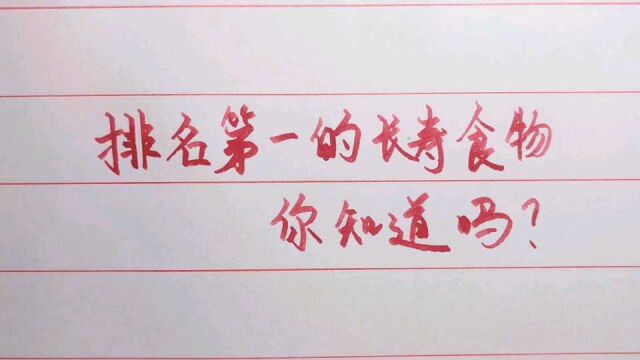 排名第一的长寿食物
你知道吗?